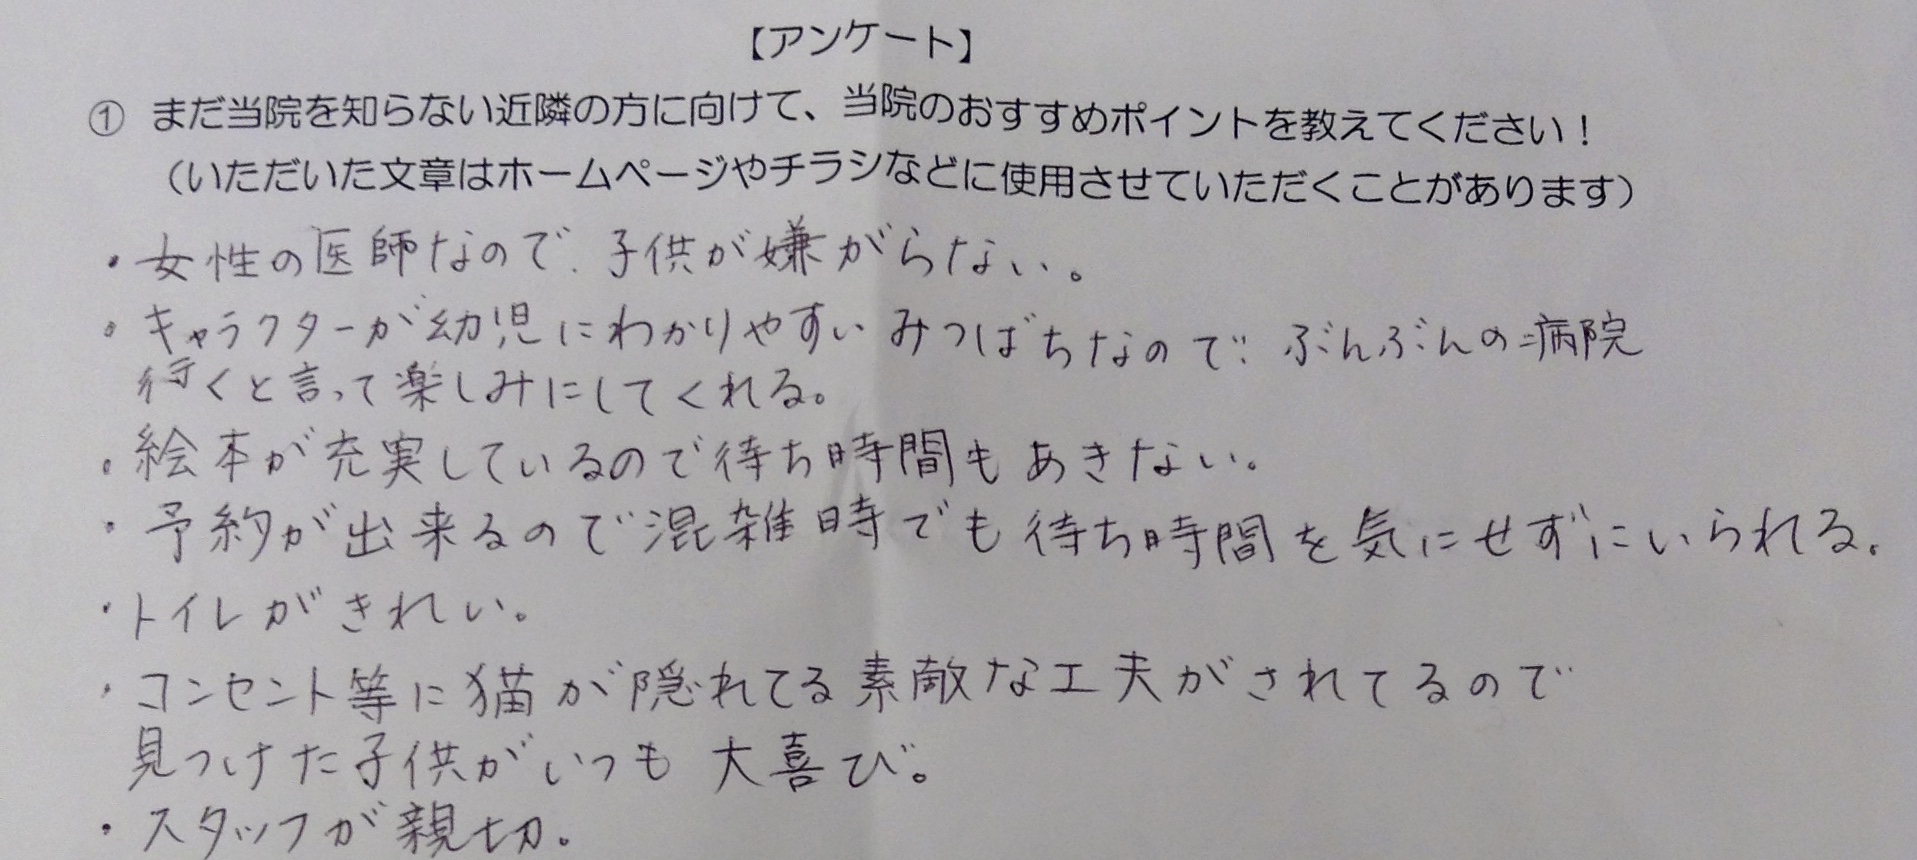 【アンケート】
① まだ当院を知らない近隣の方に向けて、当院のおすすめポイントを教えてください！
（いただいた文章はホームページやチラシなどに使用させていただくことがあります）
・女性の医師なので、子供が嫌がらない。
・キャラクターが幼児にわかりやすいみつばちなので、ぶんぶんの病院
行くと言って楽しみにしてくれる。
・絵本が充実しているので待ち時間もあきない。
・予約が出来るので混雑時でも待ち時間を気にせずにいられる。
・トイレがきれい。
・コンセント等に猫が隠れてる素敵な工夫がされてるので
見つけた子供がいつも大喜び。
・スタッフが親切。